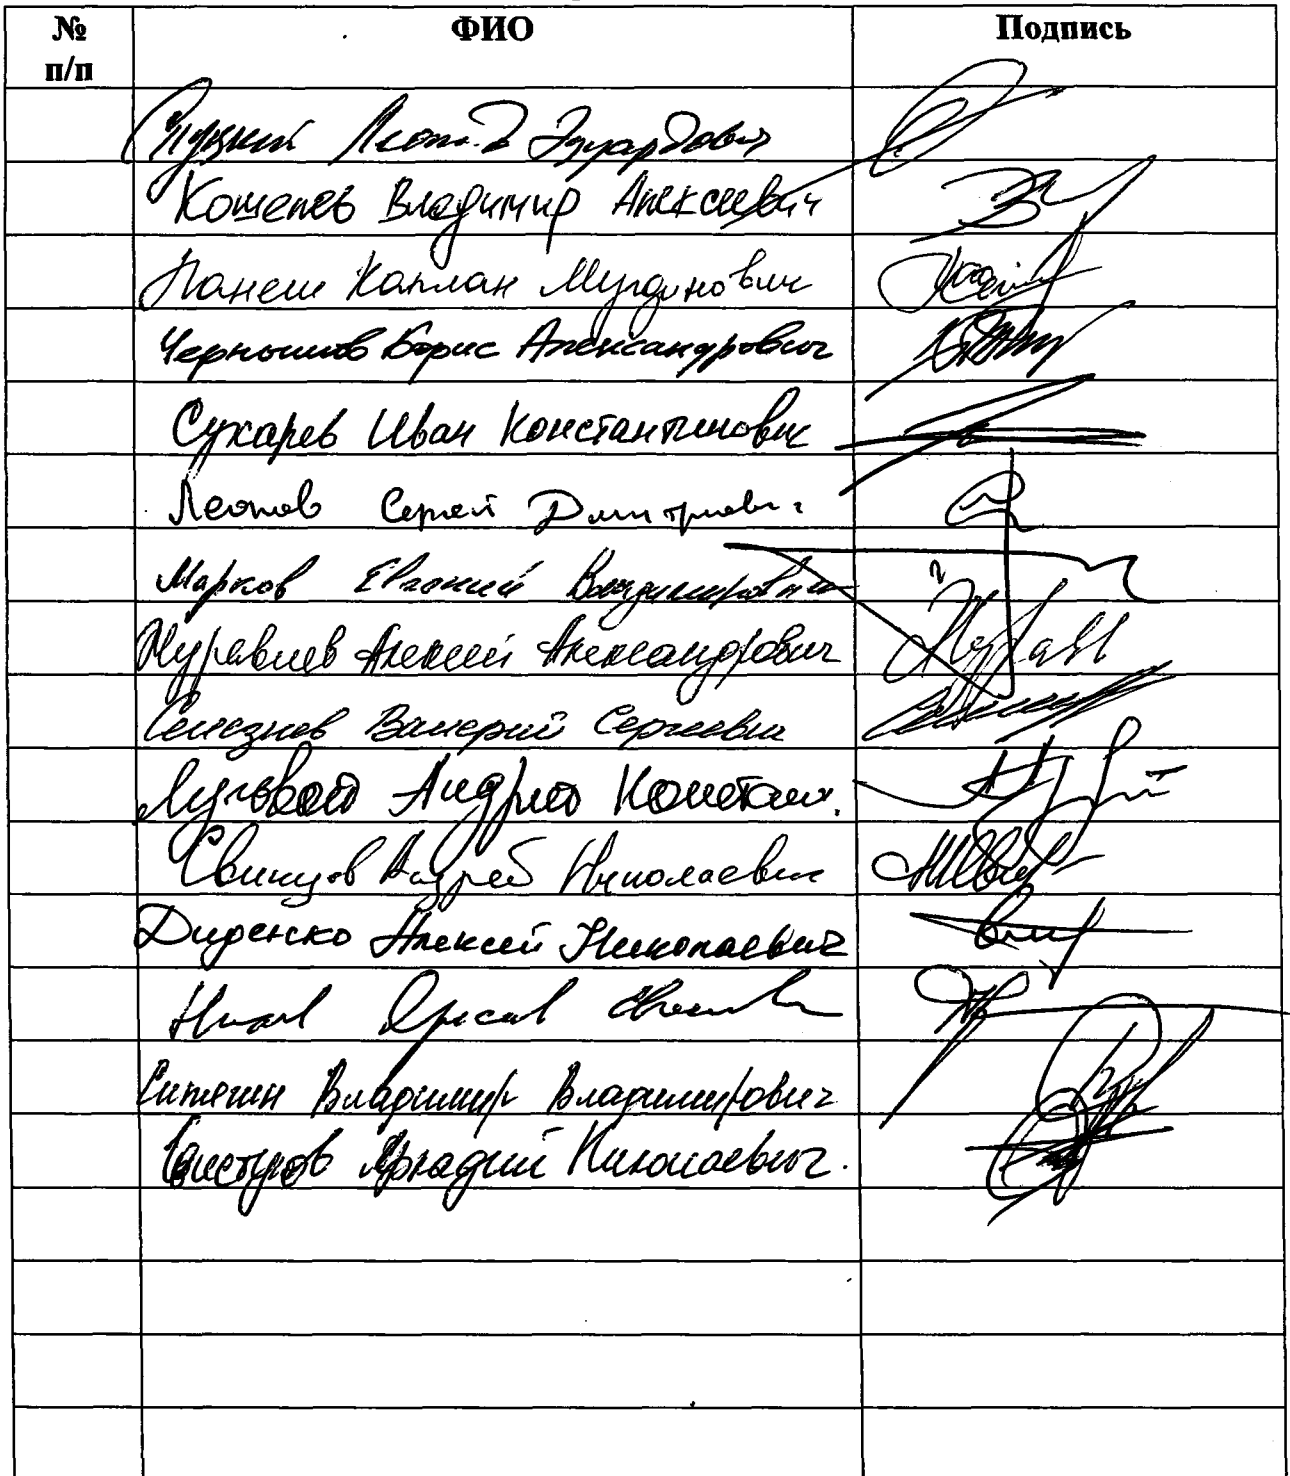 № ФИО Подпись
п/п
Слуцкий Леонид Эдуардович
Кошелев Владимир Алексеевич
Панеш Каплан Мугдинович
Чернышов Борис Александрович
Сухарев Иван Константинович
Леонов Сергей Дмитриевич
Марков Евгений Владимирович
Журавлев Алексей Александрович
Селезнев Валерий Сергеевич
Луговой Андрей Констант.
Свинцов Андрей Николаевич
Диденко Алексей Николаевич
Нилов
Сипягин Владимир Владимирович
Свистунов Аркадий Николаевич.